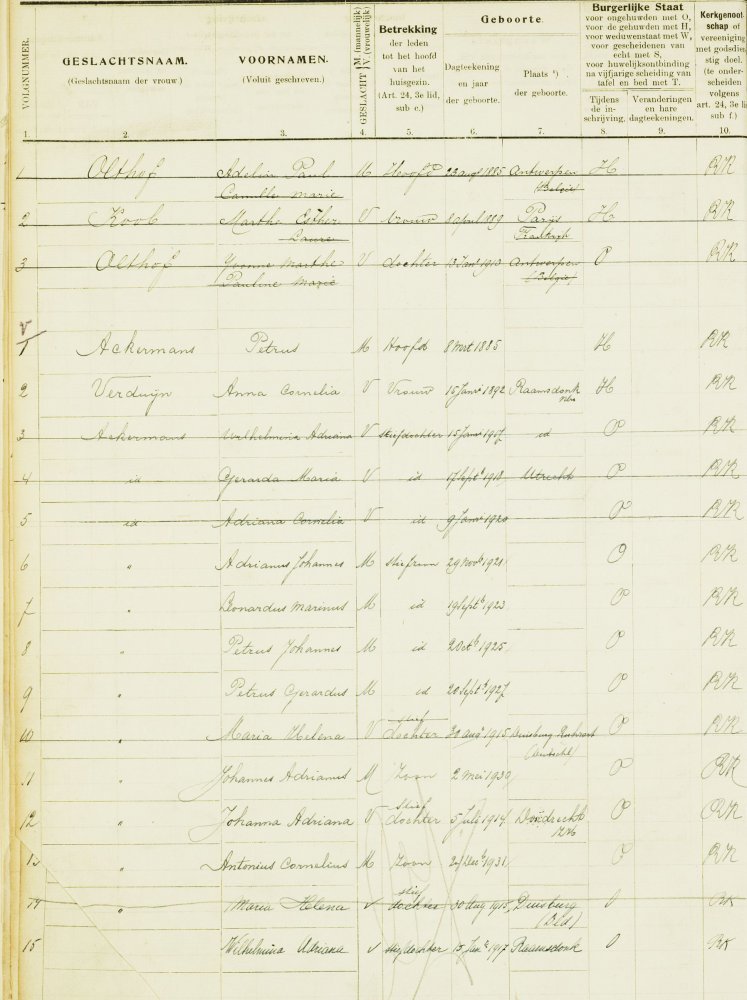 VOLGNUMMER.
GESLACHTSNAAM.
(Geslachtsnaam der vrouw.)
VOORNAMEN.
(Voluit geschreven.)
GESLACHT M. (mannelijk) V. (vrouwelijk)
Betrekking
der leden
tot het hoofd
van het
huisgezin.
(Art. 24, 3e lid,
sub e.)
Geboorte
Dagteekening
en jaar
der geboorte.
Plaats
der geboorte.
Burgerlijke Staat
voor ongehuwden met O,
voor de gehuwden met H,
voor weduwenstaat met W,
voor gescheidenen van
echt met S,
voor huwelijksontbinding
na vijfjarige scheiding van
tafel en bed met T.
Tijdens
de in-
schrijving.
Veranderingen
en hare
dagteekeningen.
Kerkgenoot-
schap of
vereeniging
met godsdien
stig doel.
(te onder-
scheiden
volgens
art. 24, 3e li
sub f.)
1. 2. 3. 4. 5. 6. 7. 8. 9. 10.
1 Olthof Adelin Paul M Hoofd 1885 Antwerpen H RK
Camille Marie (België)
2 Koob Marthe Esther V Vrouw 8 april 1889 Parijs H RK
Laure Frankrijk
3 Olthof Yvonne Marthe V dochter 13 Jan 1913 Antwerpen O RK
Pauline Marie (België)
V
1 Ackermans Petrus M Hoofd 8 1885 H RK
2 Verduijn Anna Cornelia V Vrouw 15 Janr 1892 Raamsdonk H RK
3 Ackermans Wilhelmina Adriana V stiefdochter 15 Janr 1917 id O RK
4 id Gerarda Maria V id 17 Sept 1918 Utrecht O RK
5 id Adriana Cornelia V id 9 Janr 1920 O RK
6 " Adrianus Johannes M stiefzoon 29 Novb 1921 O RK
7 " Leonardus Marinus M id 19 Septb 1923 O RK
8 " Petrus Johannes M id 2 Octb 1925 O RK
9 " Petrus Gerardus M id 20 Septb 1927 O RK
stief
10 " Maria Helena V dochter 30 aug 1915 Duisburg Ruhrort O RK
11 " Johannes Adrianus M Zoon 2 mei 1930 O RK
stief
12 " Johanna Adriana V dochter 5 Juli 1914 Dordrecht O RK
13 " Antonius Cornelius M Zoon Decb 1931 O RK
stief
14 " Maria Helena V dochter 30 Aug 1915 Duisburg O RK
(Dld)
15 Wilhelmina Adriana V stiefdochter 15 Jan 1917 Raamsdonk O RK